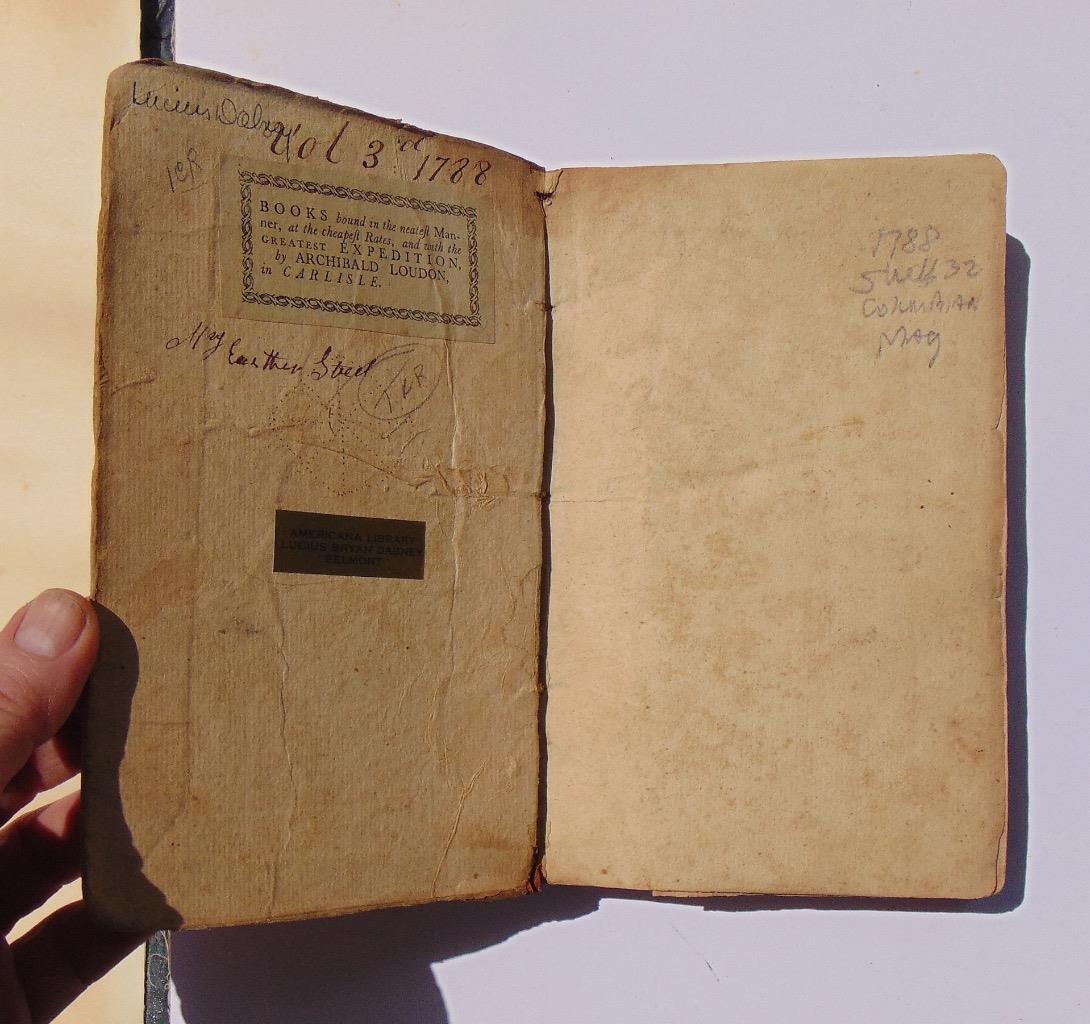 Lucius Dabney
Vol 3d 1788
BOOKS bound in the neateſt Man-
ner, at the cheapeſt Rates, and with the
GREATEST EXPEDITION,
by ARCHIBALD LOUDON,
in CARLISLE.
AMERICANA LIBRARY
LUCIUS BRYAN DABNEY
BELMONT
1788
Shelf 32
COLUMBIAN
MAG